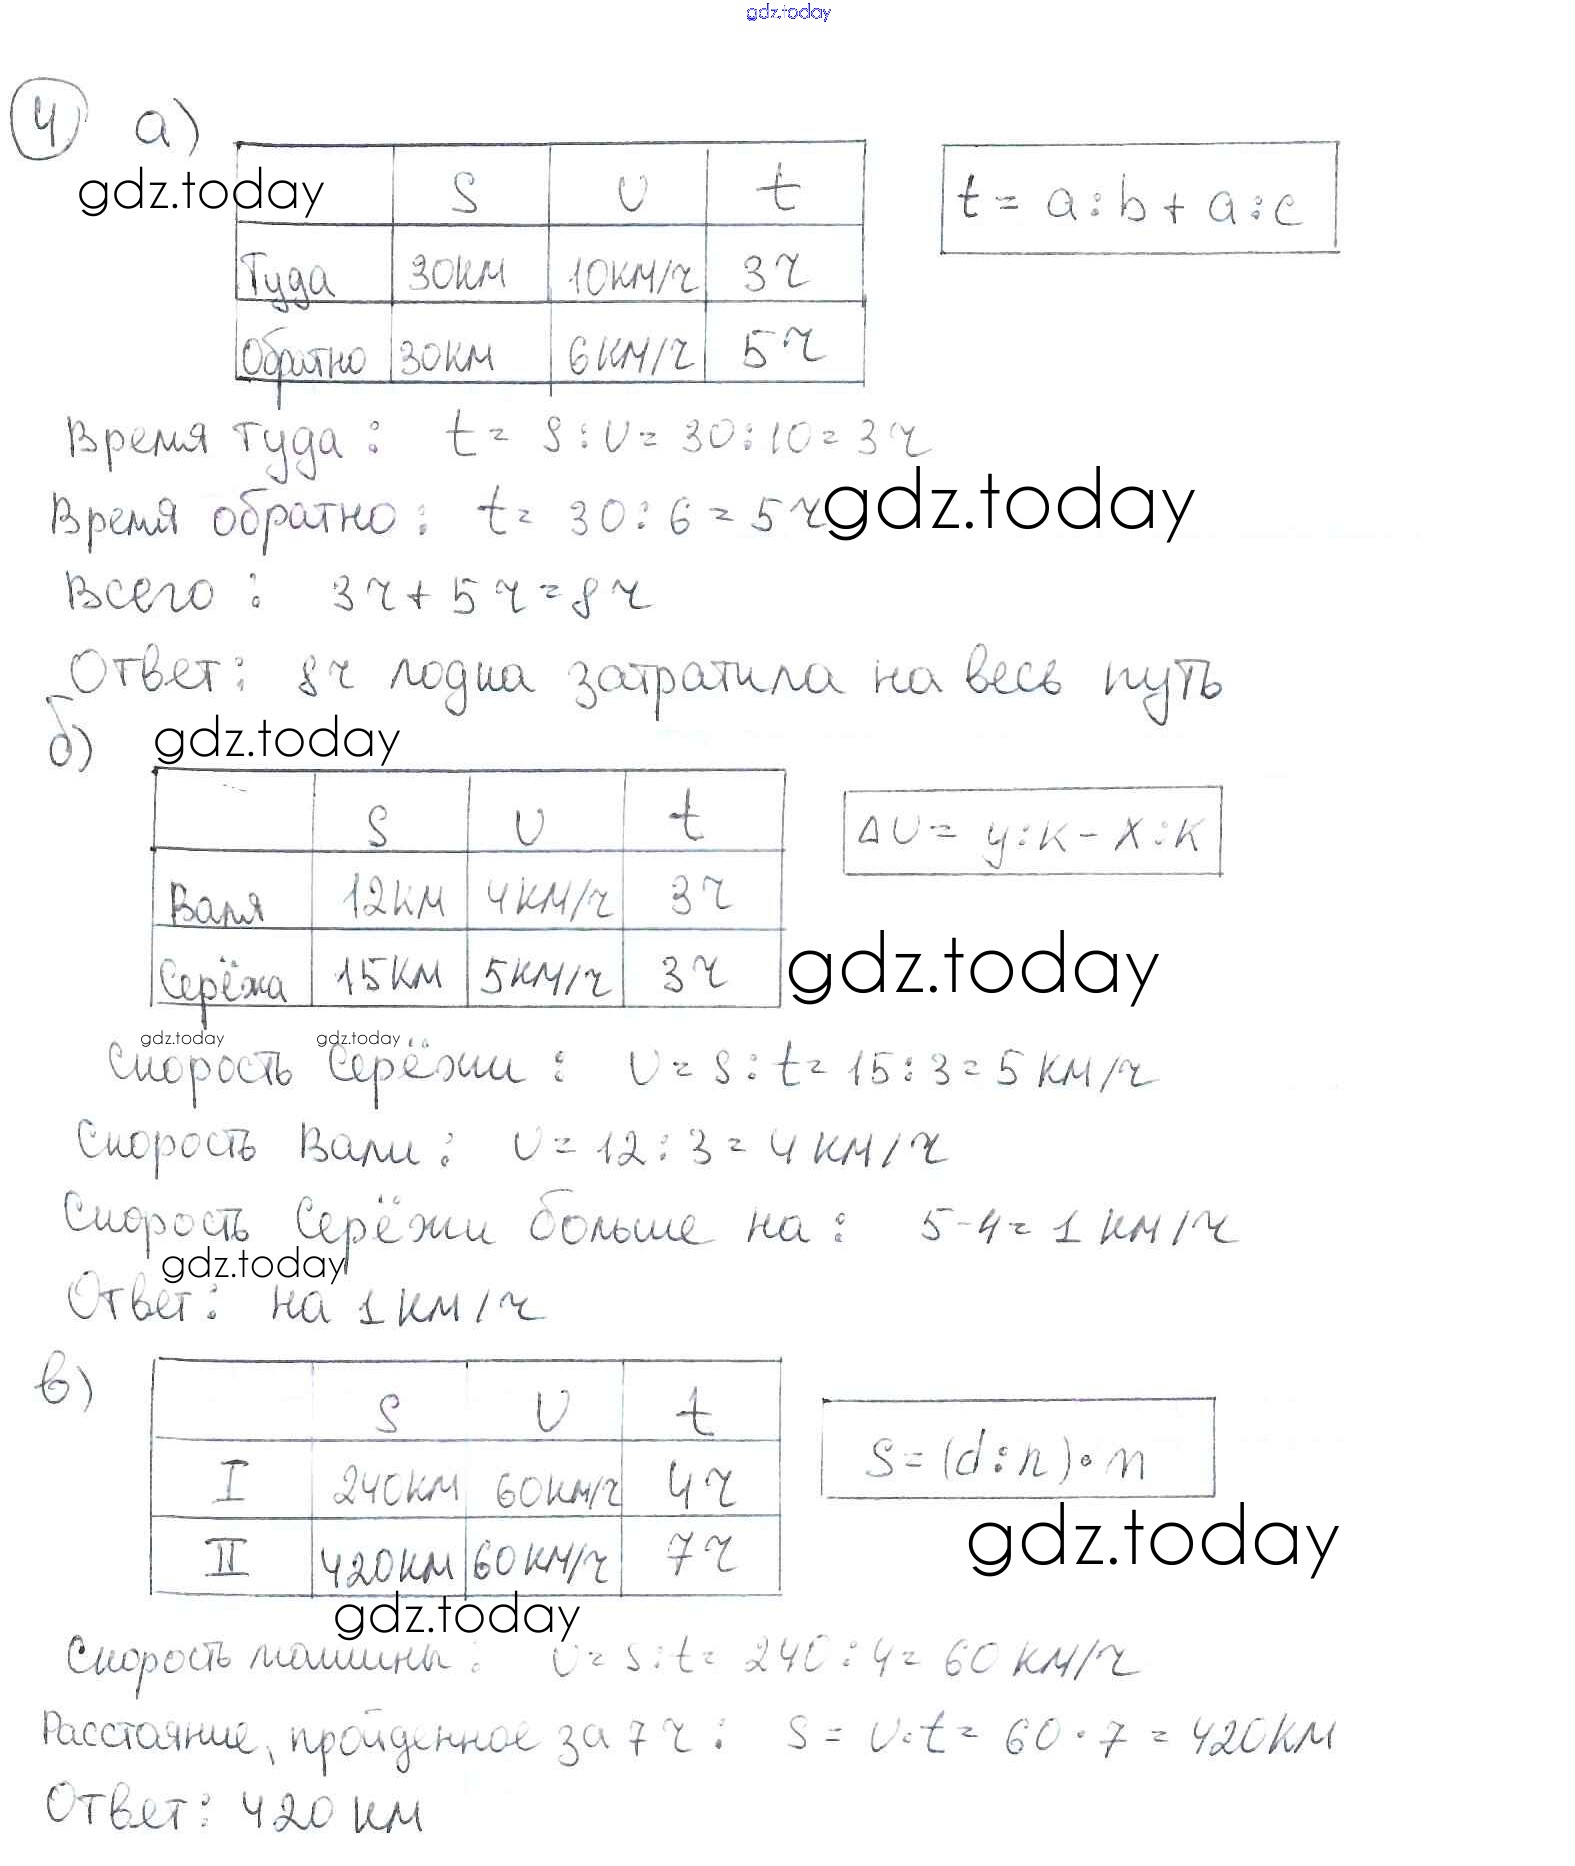 gdz.today
4 а)
gdz.today
S υ t
t = a : b + a : c
Туда 30км 10км/ч 3ч
Обратно 30км 6км/ч 5ч
Время туда : t = S : υ = 30 : 10 = 3ч
Время обратно : t = 30 : 6 = 5ч
gdz.today
Всего : 3ч + 5ч = 8ч
Ответ : 8ч лодка затратила на весь путь
б)
gdz.today
S υ t
Δυ = y : k - x : k
Валя 12км 4км/ч 3ч
Серёжа 15км 5км/ч 3ч
gdz.today
gdz.today gdz.today
Скорость Серёжи : υ = S : t = 15 : 3 = 5 км/ч
Скорость Вали : υ = 12 : 3 = 4 км/ч
Скорость Серёжи больше на : 5 - 4 = 1 км/ч
gdz.today
Ответ : на 1 км/ч
в)
S υ t
S = (d : n) · m
I 240км 60км/ч 4ч
II 420км 60км/ч 7ч
gdz.today
gdz.today
Скорость машины : υ = S : t = 240 : 4 = 60 км/ч
Расстояние, пройденное за 7ч : S = υ · t = 60 · 7 = 420км
Ответ : 420 км